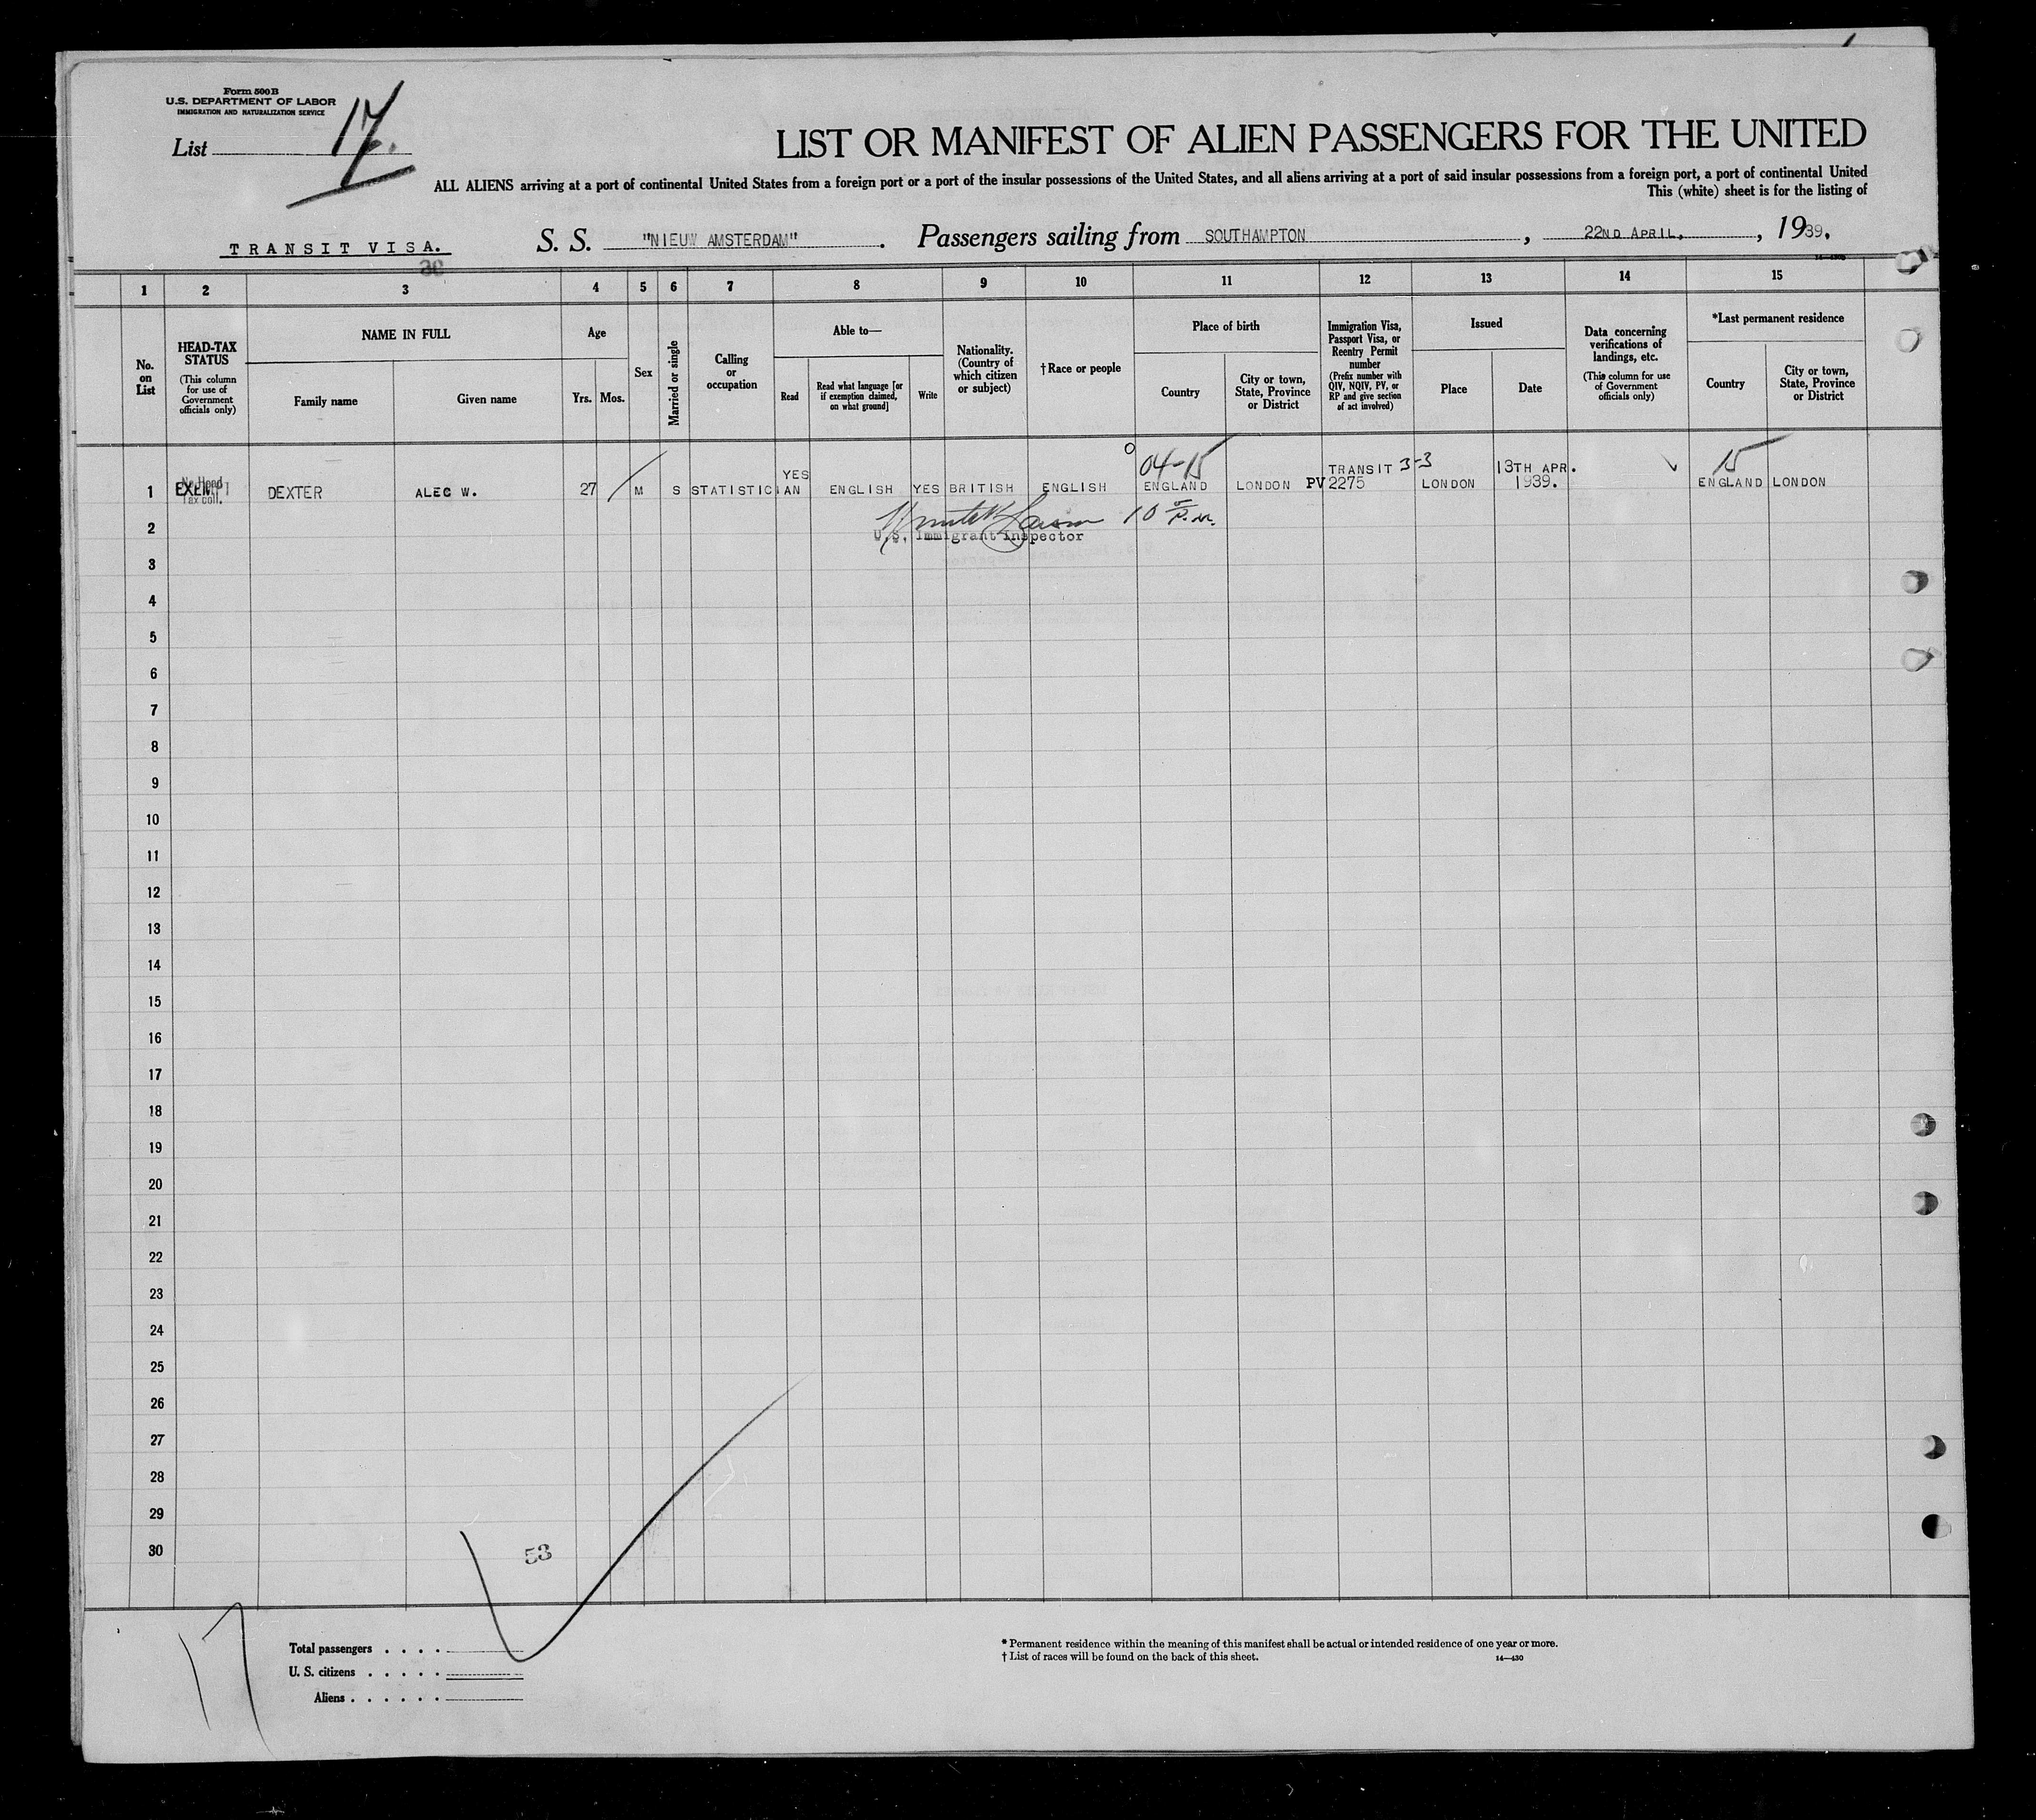 Form 500 B
U.S. DEPARTMENT OF LABOR
IMMIGRATION AND NATURALIZATION SERVICE
List 17.
LIST OR MANIFEST OF ALIEN PASSENGERS FOR THE UNITED
ALL ALIENS arriving at a port of continental United States from a foreign port or a port of the insular possessions of the United States, and all aliens arriving at a port of said insular possessions from a foreign port, a port of continental United
This (white) sheet is for the listing of
TRANSIT VISA. S. S. "NIEUW AMSTERDAM". Passengers sailing from SOUTHAMPTON, 22ND APRIL, 1939.
1 2 3 4 5 6 7 8 9 10 11 12 13 14 15
No. on List
HEAD-TAX STATUS
(This column for use of Government officials only)
NAME IN FULL
Family name
Given name
Age
Yrs.
Mos.
Sex
Married or single
Calling or occupation
Able to—
Read
Read what language [or if exemption claimed, on what ground]
Write
Nationality. (Country of which citizen or subject)
†Race or people
Place of birth
Country
City or town, State, Province or District
Immigration Visa, Passport Visa, or Reentry Permit number
(Prefix number with QIV, NQIV, PV, or RP and give section of act involved)
Issued
Place
Date
Data concerning verifications of landings, etc.
(This column for use of Government officials only)
*Last permanent residence
Country
City or town, State, Province or District
04-15
TRANSIT 3-3
15
1 DEXTER ALEC W. 27 M S STATISTICIAN YES ENGLISH YES BRITISH ENGLISH ENGLAND LONDON PV 2275 LONDON 13TH APR. 1939. ENGLAND LONDON
10
P.M.
U.S. Immigrant Inspector
2
3
4
5
6
7
8
9
10
11
12
13
14
15
16
17
18
19
20
21
22
23
24
25
26
27
28
29
30
53
17
Total passengers . . . .
U. S. citizens . . . . .
Aliens . . . . . .
* Permanent residence within the meaning of this manifest shall be actual or intended residence of one year or more.
† List of races will be found on the back of this sheet.
14—430